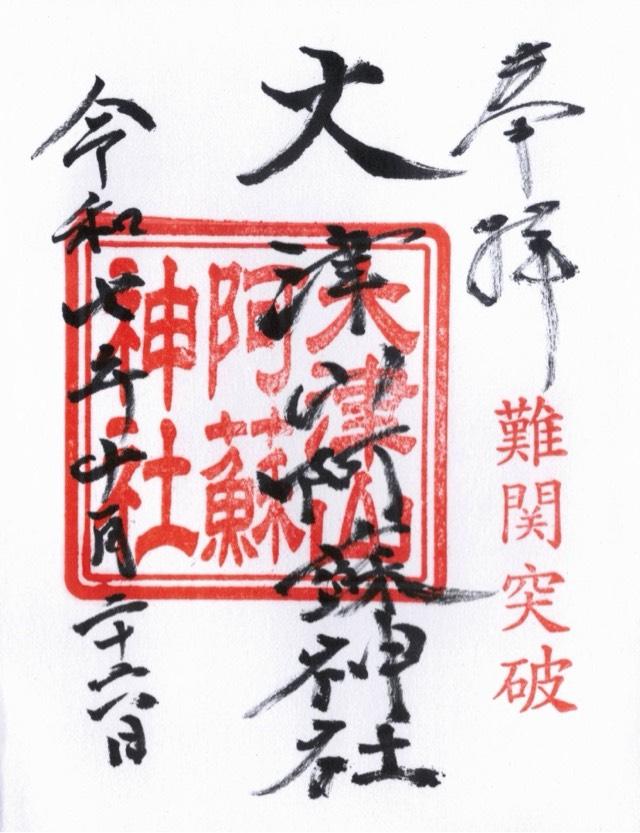 奉拝
難関突破
大津山阿蘇神社
大津山
阿蘇
神社
令和七年十月二十六日